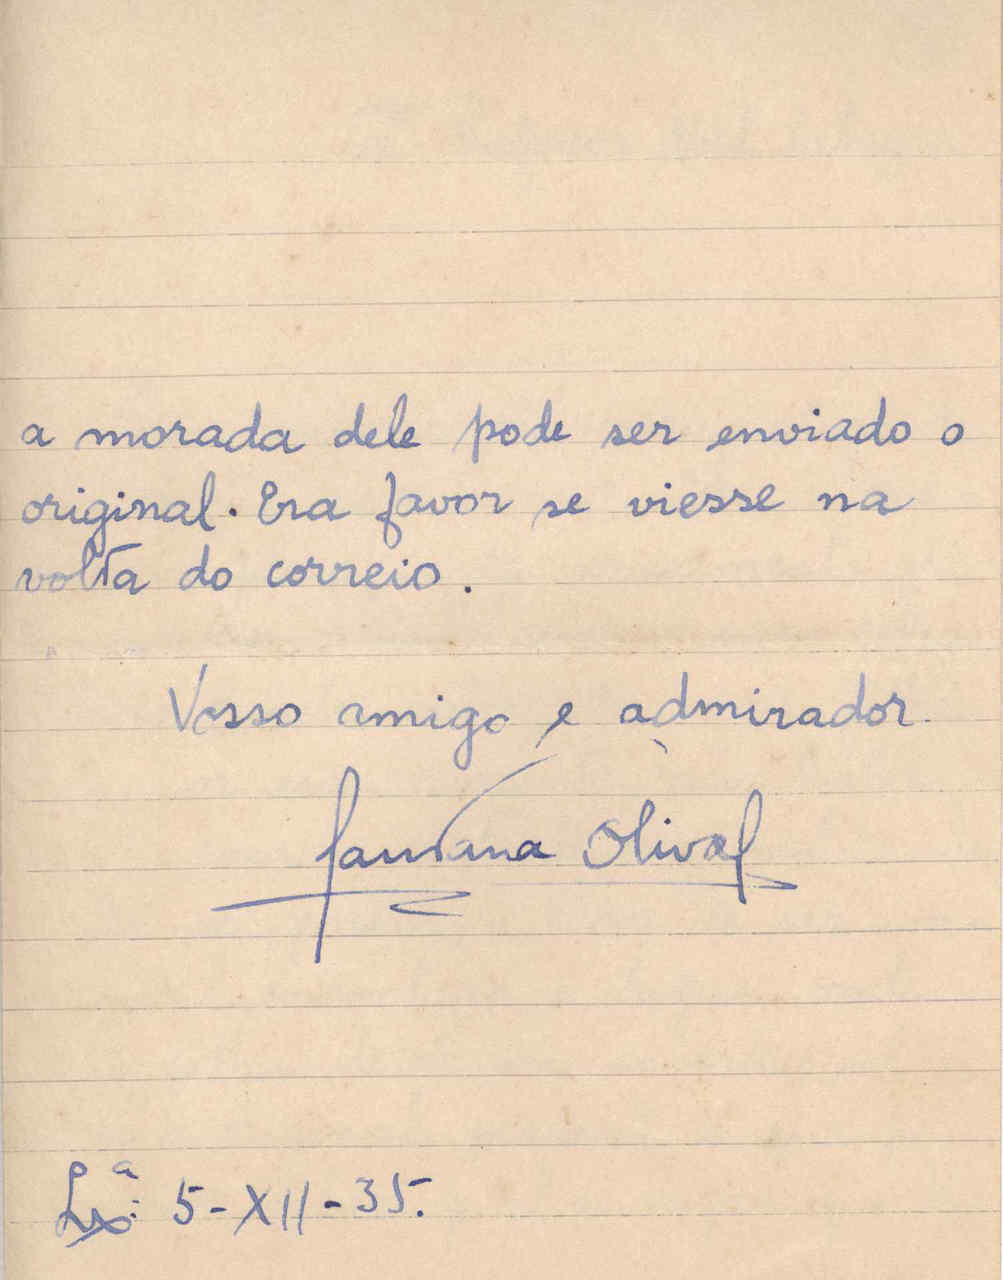 a morada dele pode ser enviado o
original. Era favor se viesse na
volta do correio.
Vosso amigo e admirador
Santana Olival
Lxª: 5-XII-35.